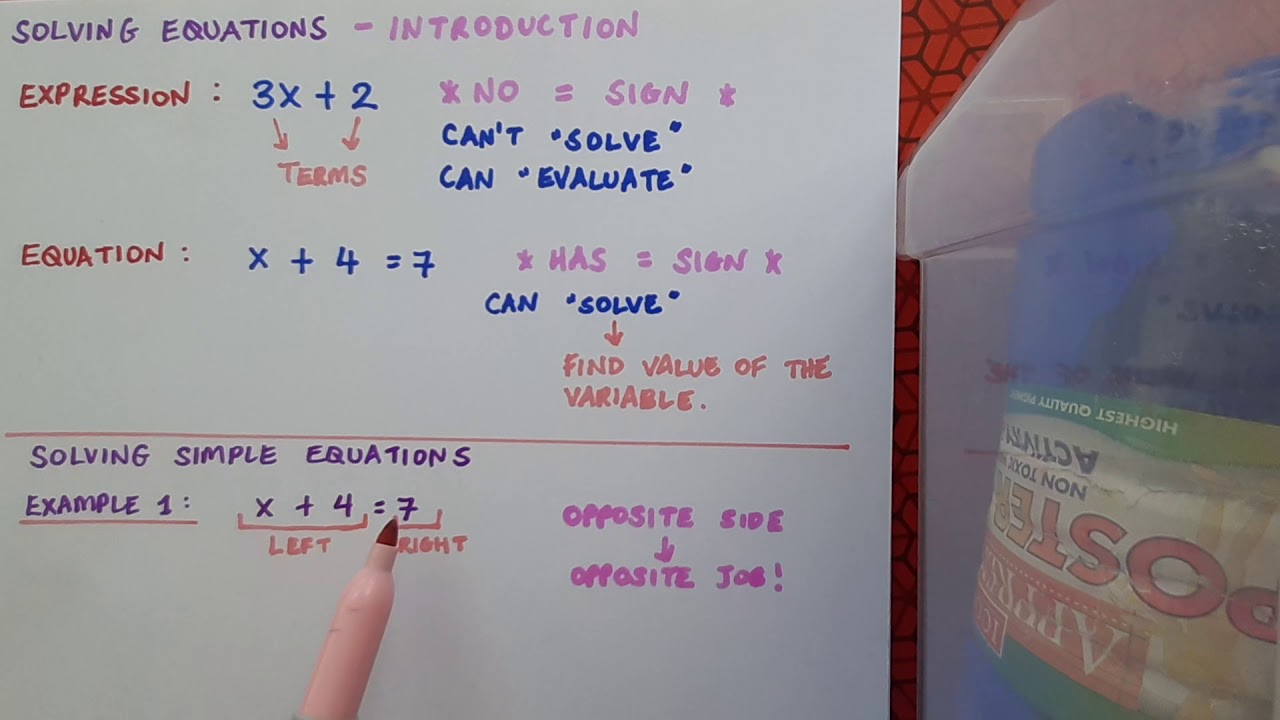 SOLVING EQUATIONS - INTRODUCTION
EXPRESSION : 3x + 2 * NO = SIGN *
CAN'T "SOLVE"
TERMS CAN "EVALUATE"
EQUATION : x + 4 = 7 * HAS = SIGN *
CAN "SOLVE"
FIND VALUE OF THE
VARIABLE.
SOLVING SIMPLE EQUATIONS
EXAMPLE 1 : x + 4 = 7 OPPOSITE SIDE
LEFT RIGHT
OPPOSITE JOB!
HIGHEST QUALITY
ACTIVITY
NON TOXIC
POSTER